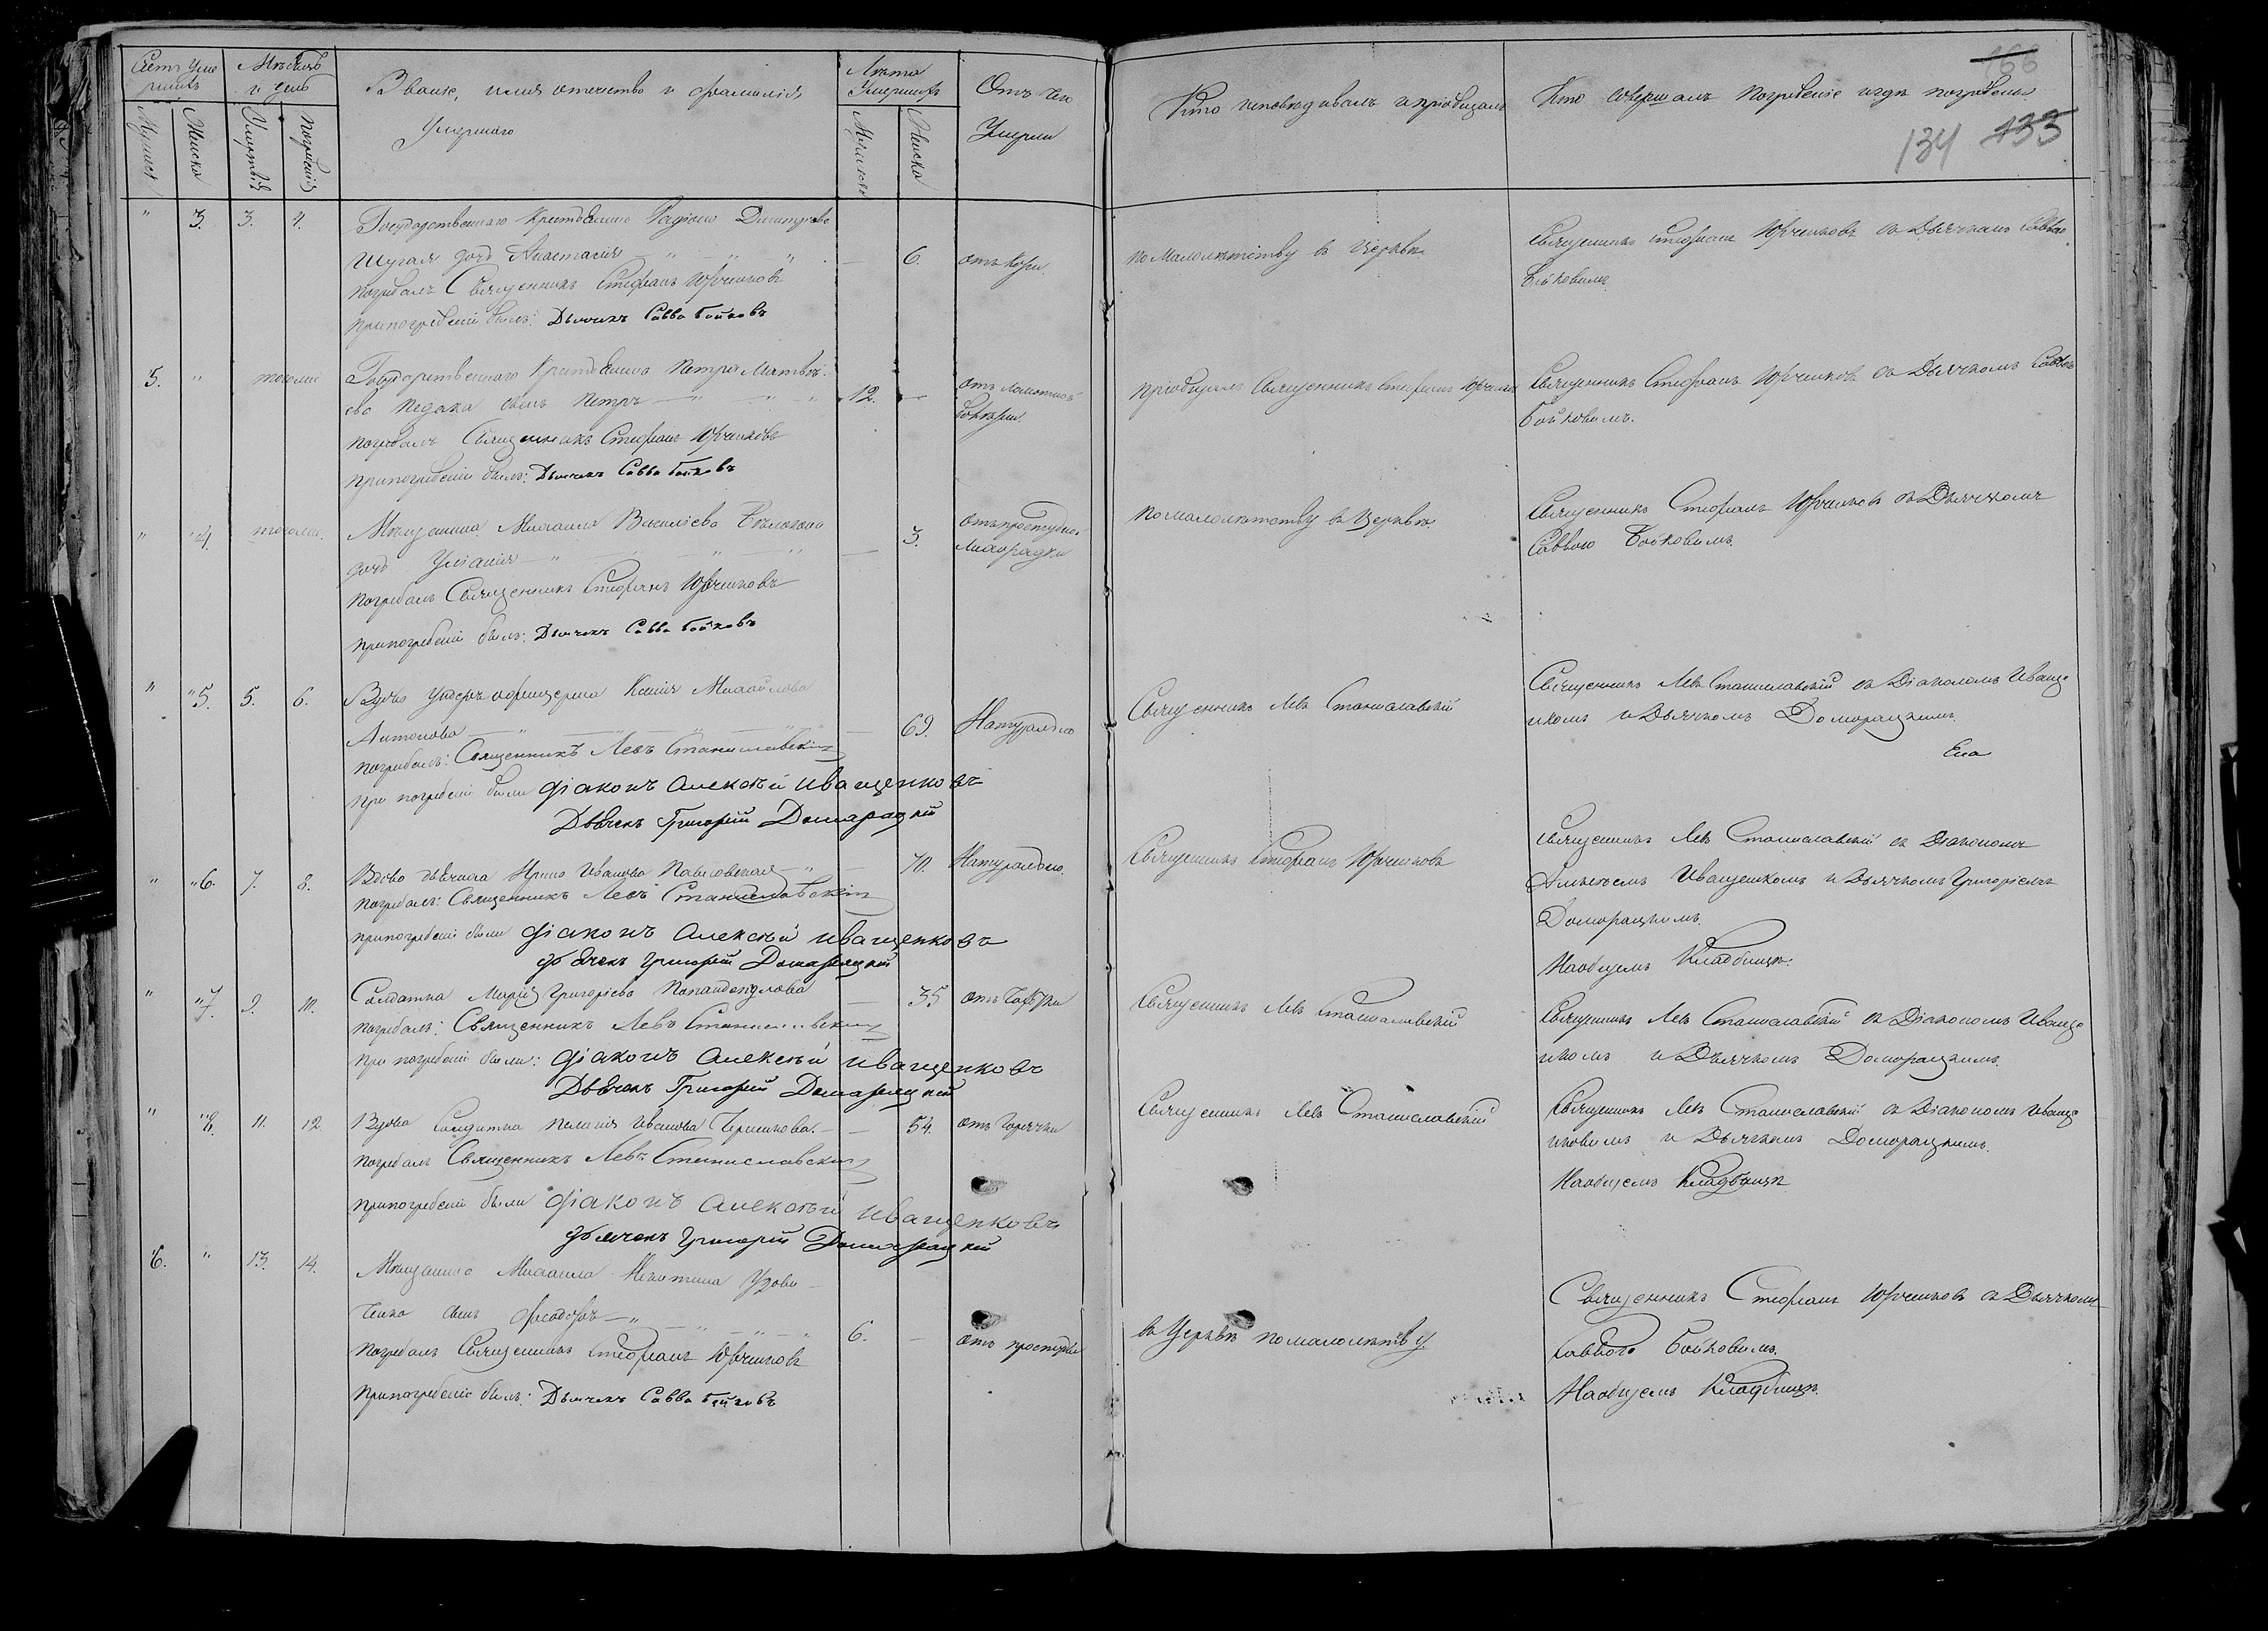 Счетъ умершихъ
Мѣсяцъ и день
Званіе, имя отечество и фамилія умершаго
Лѣта умершихъ
Отъ чего умерли
Кто исповѣдывалъ и пріобщалъ
Кто совершалъ погребеніе и гдѣ погребены
166
134 133
Мужеска
Женска
Смерти
Погребенія
Мужеска
Женска
" 3. 3. 4. Государственнаго Крестьянина Радіона Дмитріева
Шугая дочь Анастасія — " — " — " — 6. отъ Кори. по малолѣтству въ Церкви Священникъ Стефанъ Юрченковъ съ Дьячкомъ Саввою
Бойковымъ.
погребалъ Священникъ Стефанъ Юрченковъ
при погребеніи былъ: Дьячекъ Савва Бойковъ
5. " того же Государственнаго Крестьянина Петра Матвѣе-
ва сынъ Петръ — " — " — " 12. — отъ пріобщалъ Священникъ Стефанъ Юрченковъ Священникъ Стефанъ Юрченковъ съ Дьячкомъ Саввою
Бойковымъ.
погребалъ Священникъ Стефанъ Юрченковъ
при погребеніи былъ: Дьячекъ Савва Бойковъ
" "4. того же. Мѣщанина Михаила Васильева
дочь Уліанія — " — " — " — " — 3. отъ простудной лихорадки по малолѣтству въ Церкви. Священникъ Стефанъ Юрченковъ съ Дьячкомъ
Саввою Бойковымъ.
погребалъ Священникъ Стефанъ Юрченковъ
при погребеніи былъ: Дьячекъ Савва Бойковъ
" "5. 5. 6. Вдова Унтеръ офицерша Ксенія Михайлова
Антонова — " — " — " 69. Натурально Священникъ Левъ Станиславскій Священникъ Левъ Станиславскій съ Діакономъ Иваще
нкомъ и Дьячкомъ Доморацкимъ.
погребалъ: Священникъ Левъ Станиславскій
при погребеніи были Діаконъ Алексѣй Иващенковъ
Дьячекъ Григорій Домарацкій
" "6. 7. 8. Вдова дьячиха Ирина Иванова Павловская — " — 70. Натурально. Священникъ Стефанъ Юрченковъ Священникъ Левъ Станиславскій съ Діакономъ
Алексѣемъ Иващенкомъ и Дьячкомъ Григоріемъ
Доморацкимъ.
На общемъ Кладбищѣ.
погребалъ: Священникъ Левъ Станиславскій
при погребеніи были Діаконъ Алексѣй Иващенковъ
Дьячекъ Григорій Домарацкій
" "7. 9. 10. Солдатка Марія Григорьева — 35 отъ Священникъ Левъ Станиславскій Священникъ Левъ Станиславскій съ Діакономъ Иваще
нкомъ и Дьячкомъ Доморацкимъ.
погребалъ: Священникъ Левъ Станиславскій
при погребеніи были: Діаконъ Алексѣй Иващенковъ
Дьячекъ Григорій Домарацкій
" "8. 11. 12. Вдова Солдатка Пелагія Иванова — — 54. отъ Горячки Священникъ Левъ Станиславскій Священникъ Левъ Станиславскій съ Діакономъ Иваще
нковымъ и Дьячкомъ Доморацкимъ.
На общемъ Кладбищѣ
погребалъ Священникъ Левъ Станиславскій
при погребеніи были Діаконъ Алексѣй Иващенковъ
Дьячекъ Григорій Домарацкій
6. " 13. 14. Мѣщанина Михаила Никитина Удови-
ченка сынъ Феодоръ — " — " — " — " 6. — отъ простуды въ Церкви по малолѣтству. Священникъ Стефанъ Юрченковъ съ Дьячкомъ
Саввою Бойковымъ.
На общемъ Кладбищѣ.
погребалъ Священникъ Стефанъ Юрченковъ
при погребеніи былъ: Дьячекъ Савва Бойковъ